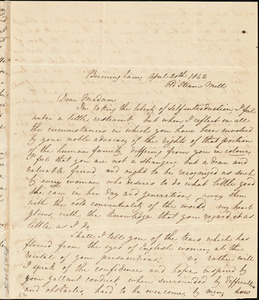 Birmingham April 20th 1840
Dear Madam
In taking the liberty of self introduction I feel
under a little restraint, but when I reflect on all
the circumstances in which you have been involved
by your noble advocacy of the rights of that portion
of the human family differing from you in colour,
I feel that you are not a stranger but a dear and
valuable friend and ought to be recognised as such
by every woman who desires to do what little good
she can in her day and generation,
with the cold conventionality of the world my heart
glows with the knowledge that you regard it as
little as I do
Shall I tell you of the tears which have
flowed from the eyes of English women at the
recital of your persecutions, or rather will
I speak of the confidence and hope inspired by
your gallant conduct when surrounded by difficulties
and obstacles, hard to be overcome by many how